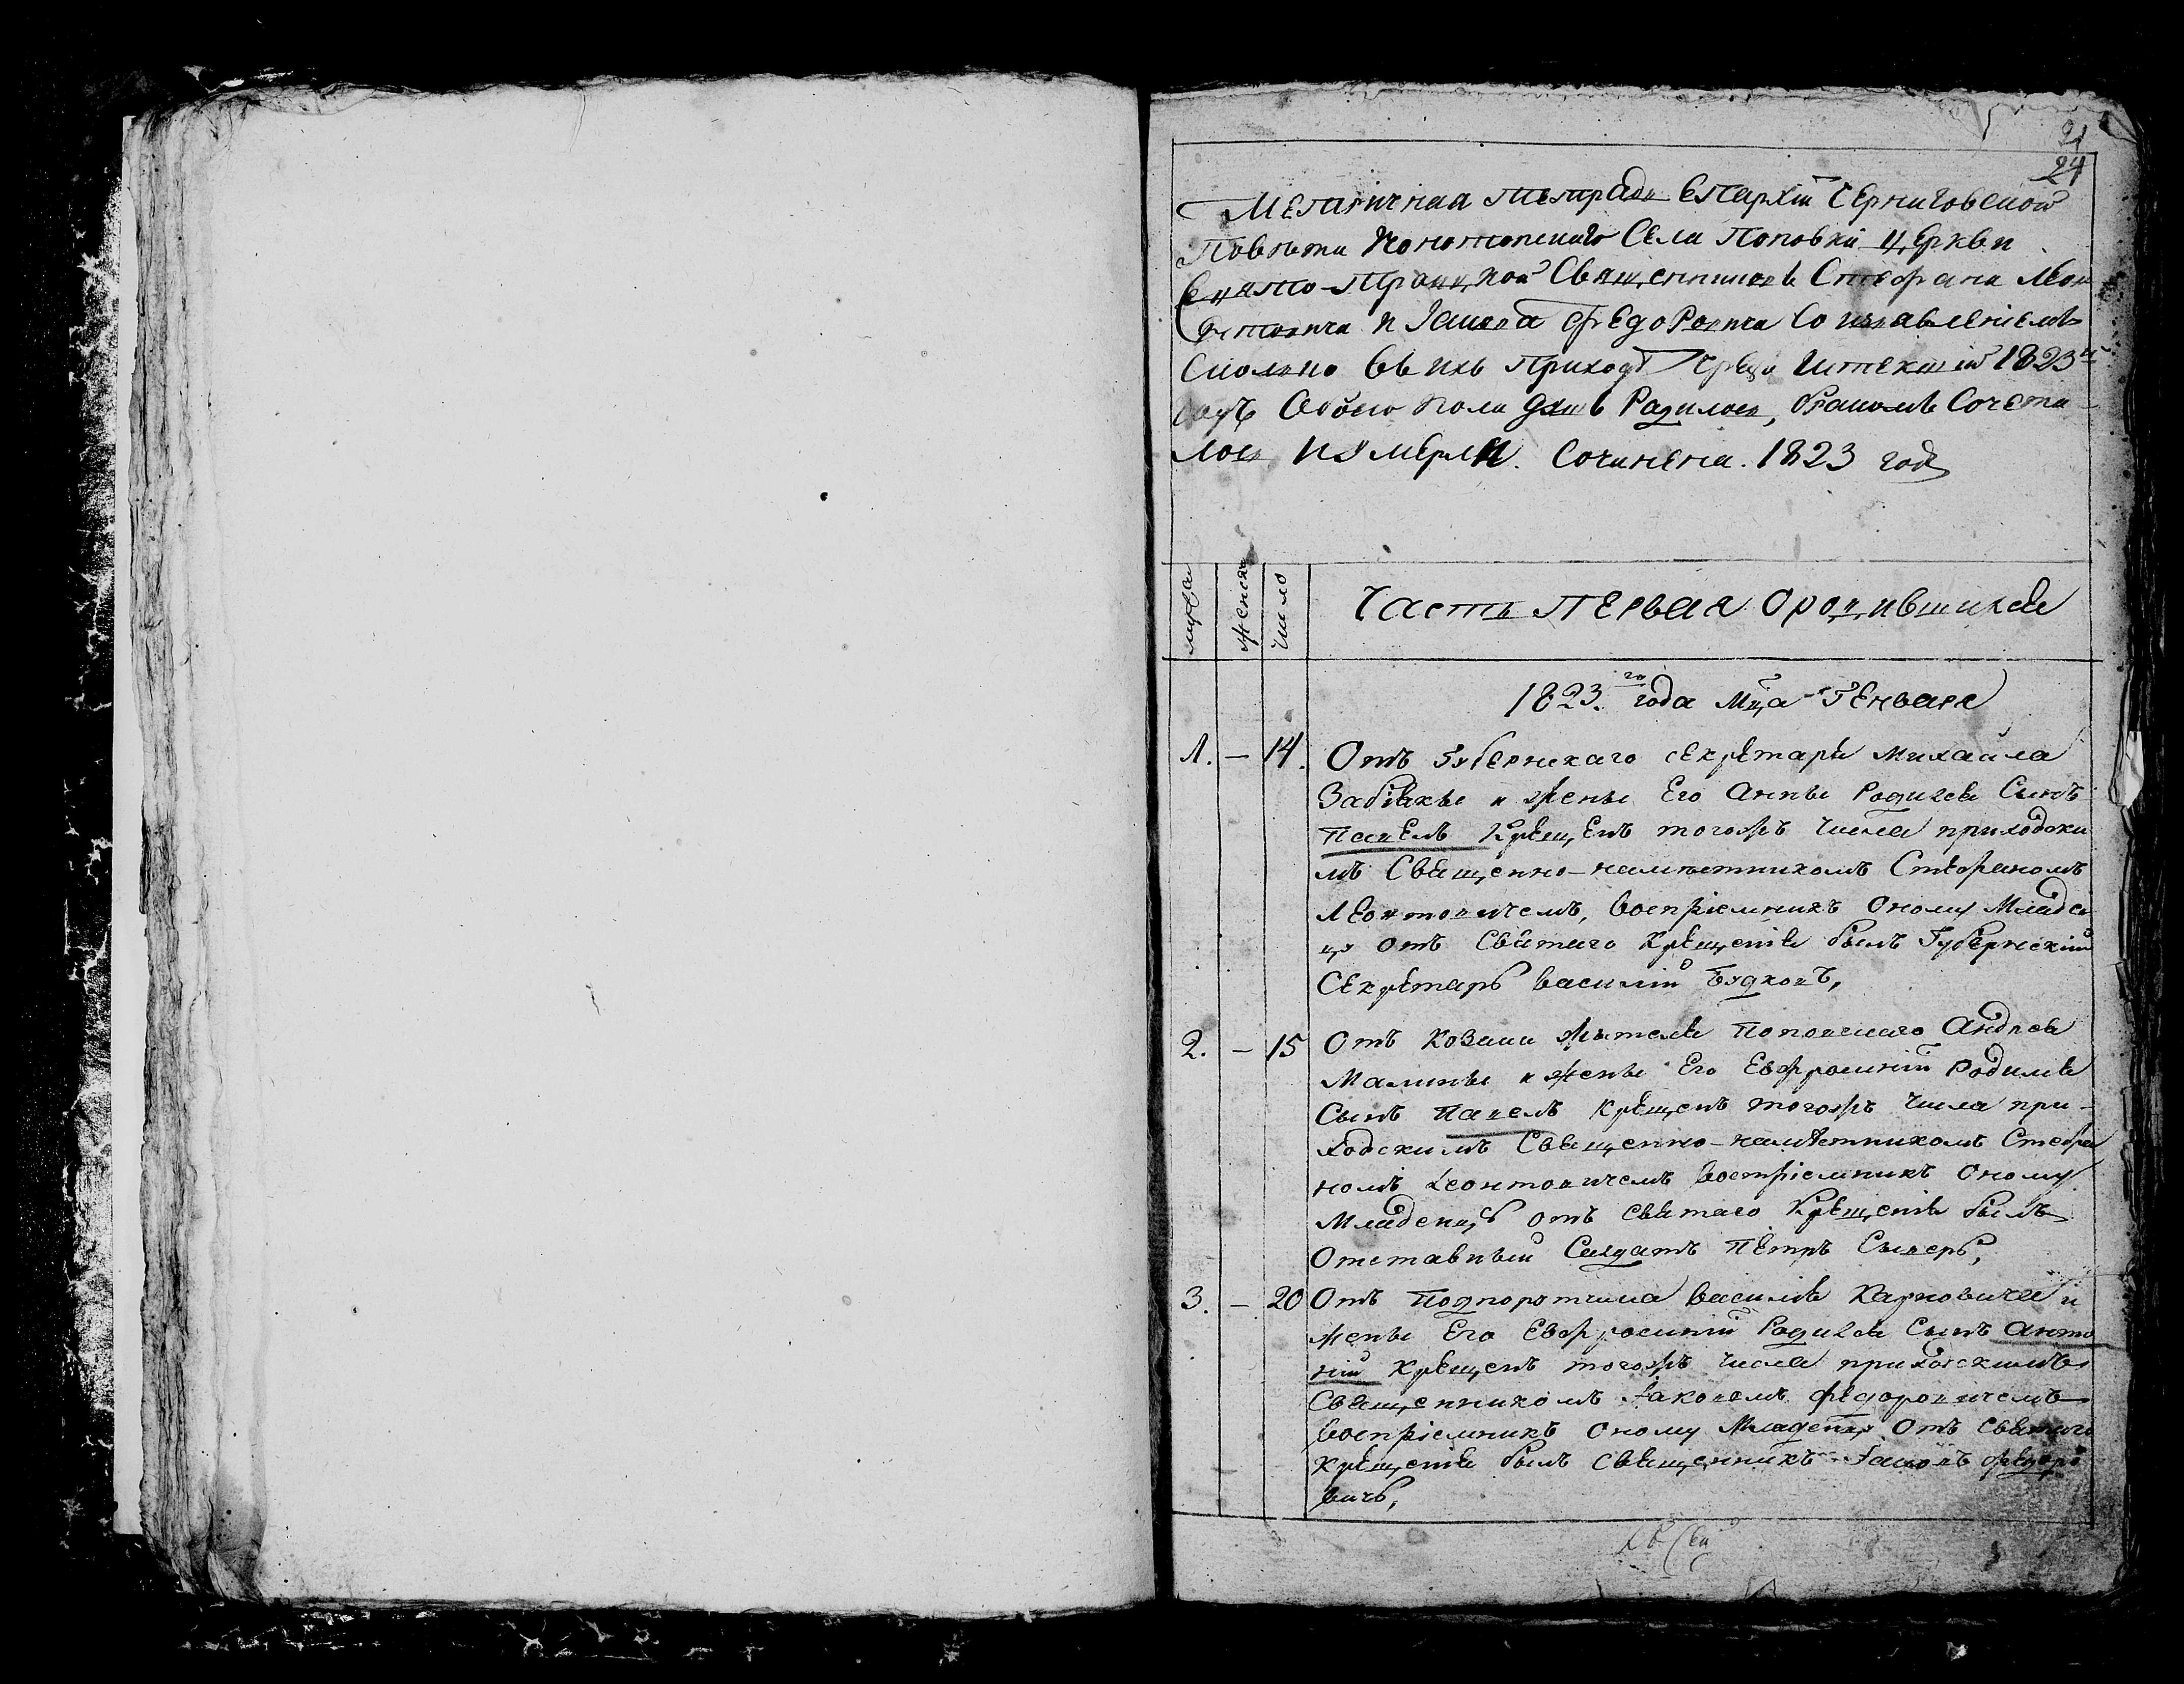 21
24
Метричная тетрадь Епархіи Черниговской
Повѣта Конотопскаго Села Поповки церкви
Свято-Троицкой Священниковъ Стефана Леон
товича и Іакова Федоровича Со изъявленіемъ
Сколько въ ихъ приходѣ чрезъ истекшій 1823й
годъ Обоего пола душъ Родилось, бракомъ Сочета
лось и умерли. Сочинена. 1823 года
мужеска
женска
число
Часть Первая О родившихся
1823.го года Мца Генваря
1. – 14. Отъ Губернскаго секретаря Михаила
Забіяки и жены Его Анны Родился Сынъ
Павелъ Крещенъ тогожъ числа приходски
мъ Священно-намѣстникомъ Стефаномъ
Леонтовичемъ, воспріемникъ Оному Младен
цу отъ Святаго крещенія былъ Губернскій
Секретарь Василій
2. – 15 Отъ Козака жителя Поповскаго Андрея
Малины и жены Его Евфросиніи Родился
Сынъ Павелъ крещенъ тогожъ числа при-
ходскимъ Священно-намѣстникомъ Стефа
номъ Леонтовичемъ воспріемникъ Оному
Младенцу отъ Святаго Крещенія былъ
Отставный Салдатъ Петръ
3. – 20 Отъ Подпоротчика Василія Карповича и
жены Его Евфросиніи Родился Сынъ Анто
ній крещенъ тогожъ числа приходскимъ
Священникомъ Іаковомъ Федоровичемъ
воспріемникъ Оному Младенцу Отъ Святаго
крещенія былъ Священникъ Іаковъ Федоро
вичъ,